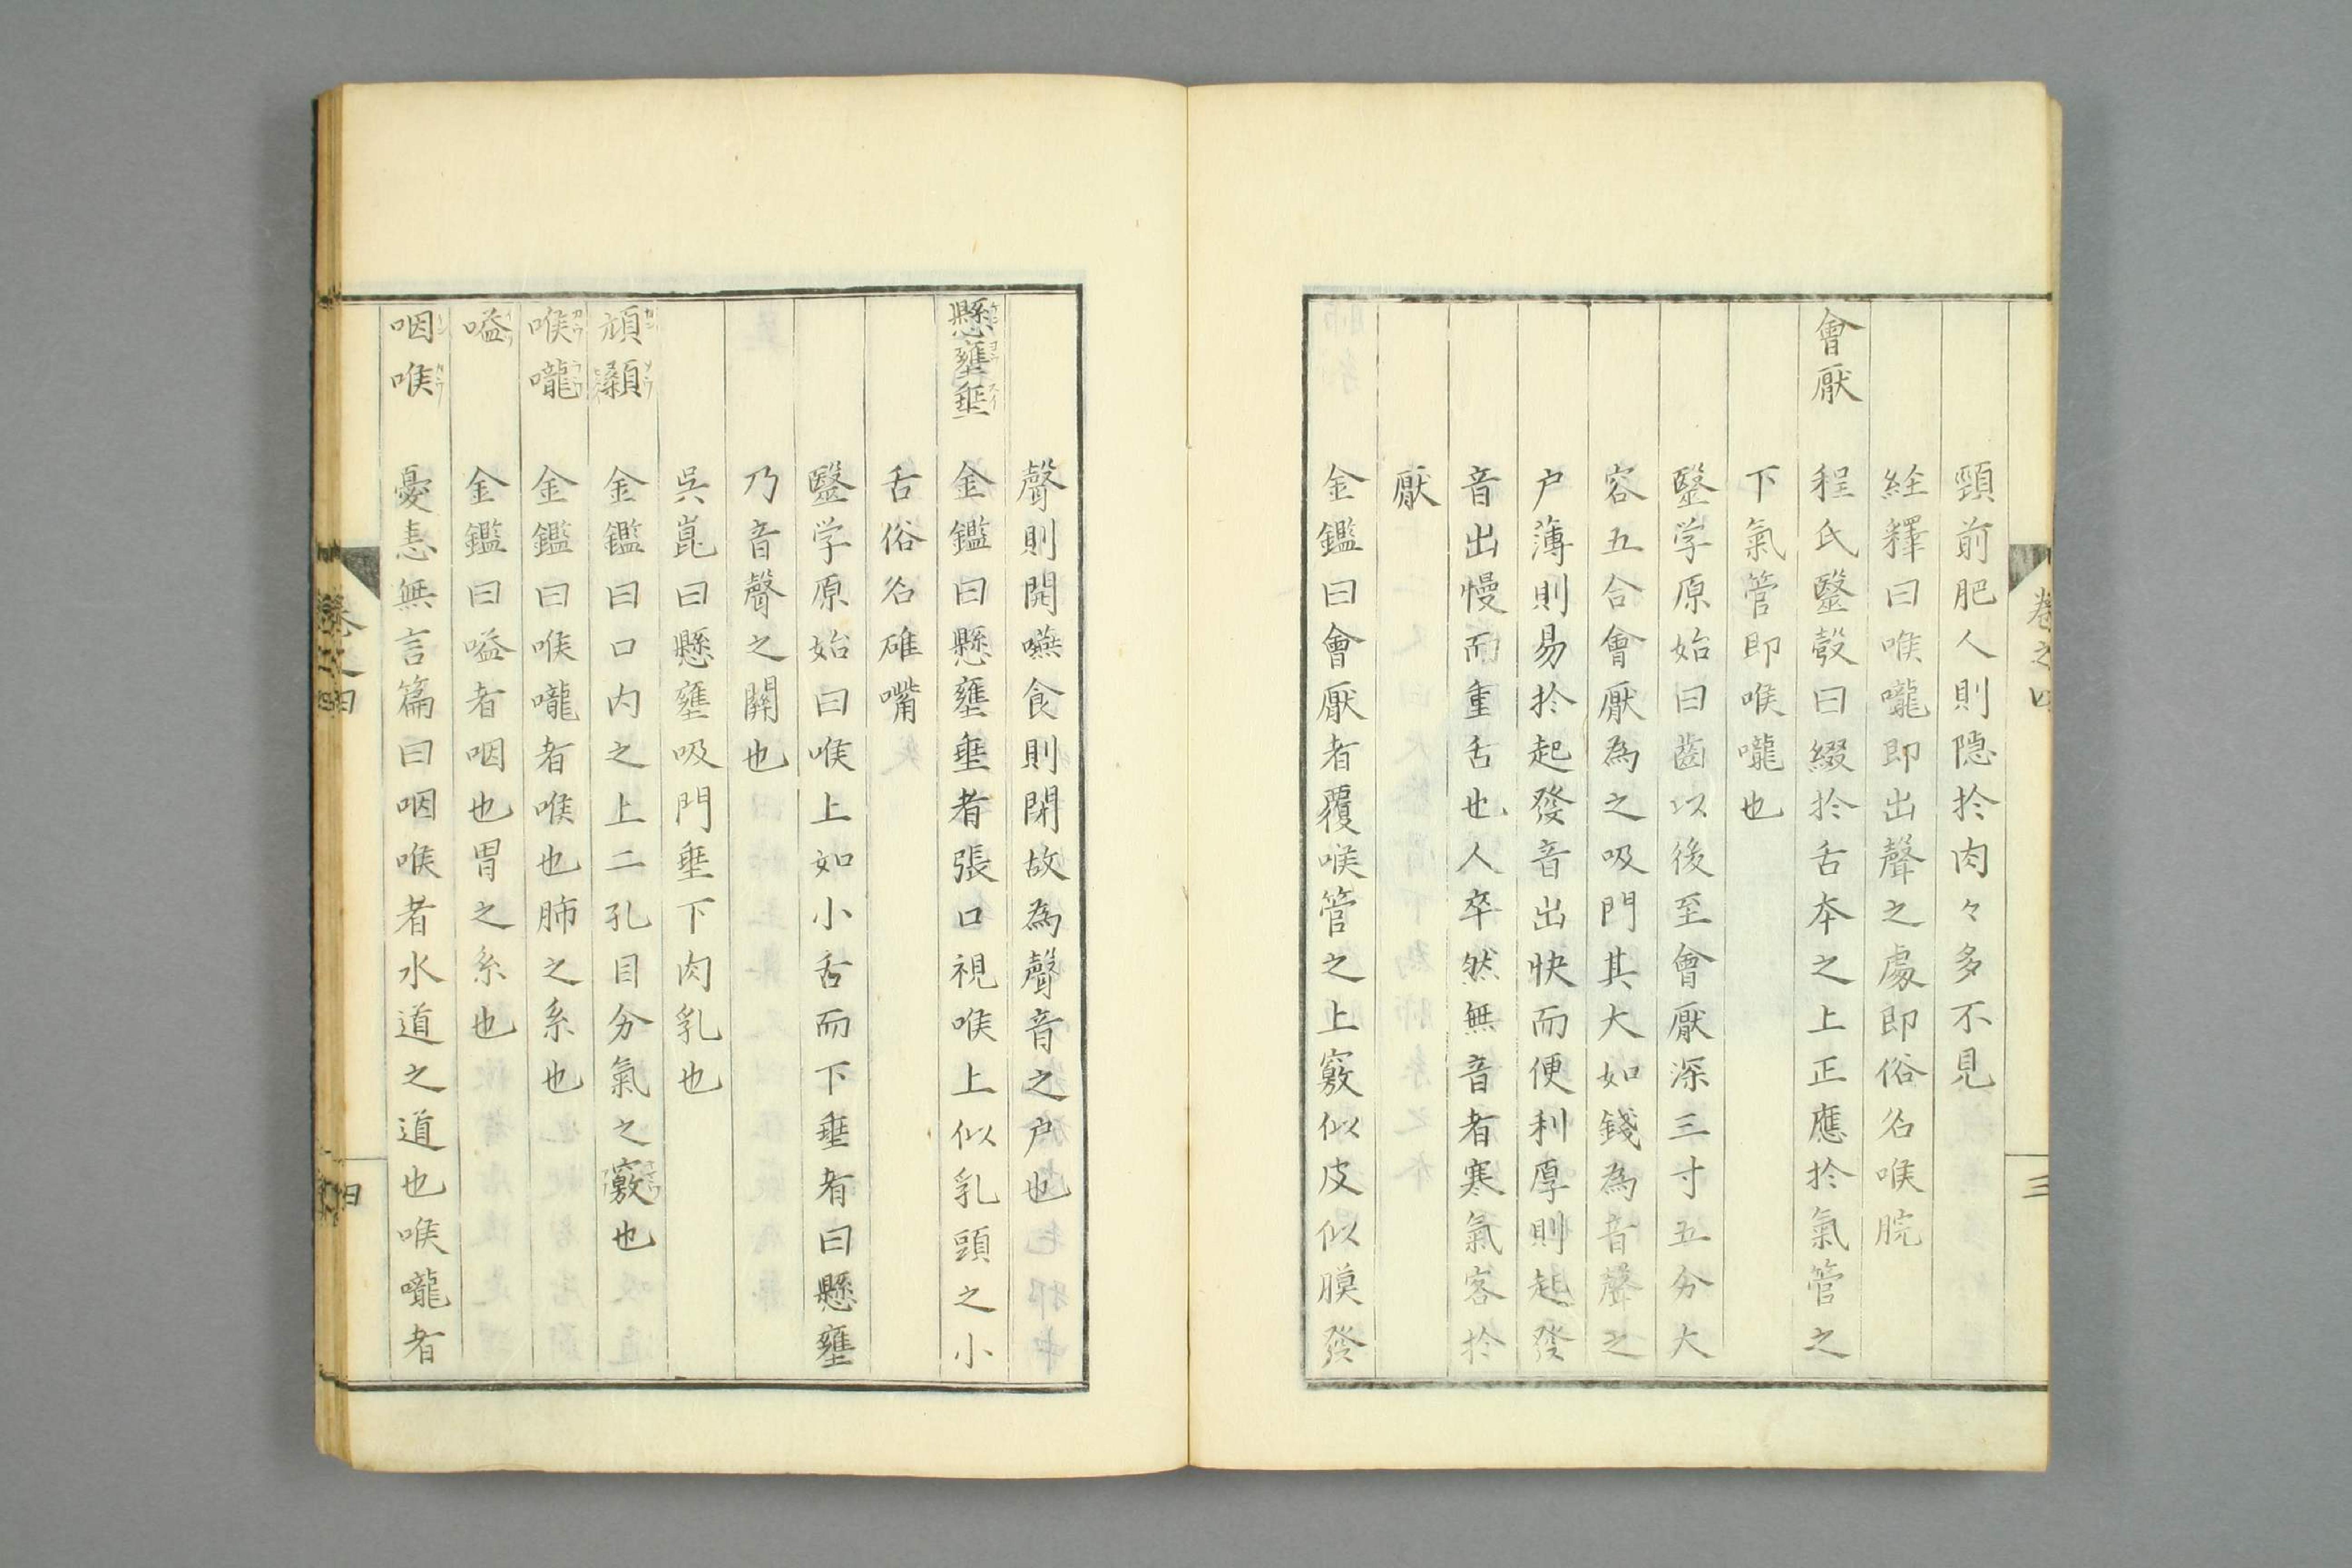 卷之四
三
頸前肥人則隠扵肉々多不見
経釋曰喉嚨即出聲之處即俗名喉脘
會厭　程氏毉彀曰綴扵舌本之上正應扵氣管之
下氣管即喉嚨也
毉学原始曰齒以後至會厭深三寸五分大
容五合會厭為之吸門其大如錢為音聲之
户薄則易扵起發音出快而便利厚則起發
音出慢而重舌也人卒然無音者寒氣客扵
厭
金鑑曰會厭者覆喉管之上竅似皮似膜發
聲則開嚥食則閉故為聲音之户也
懸壅垂　金鑑曰懸壅垂者張口視喉上似乳頭之小
舌俗名碓嘴
毉学原始曰喉上如小舌而下垂者曰懸壅
乃音聲之關也
吳崑曰懸壅吸門垂下肉乳也
頏顙　金鑑曰口内之上二孔目分氣之竅也
喉嚨　金鑑曰喉嚨者喉也肺之系也
嗌　金鑑曰嗌者咽也胃之系也
咽喉　憂恚無言篇曰咽喉者水道之道也喉嚨者
卷之四
四